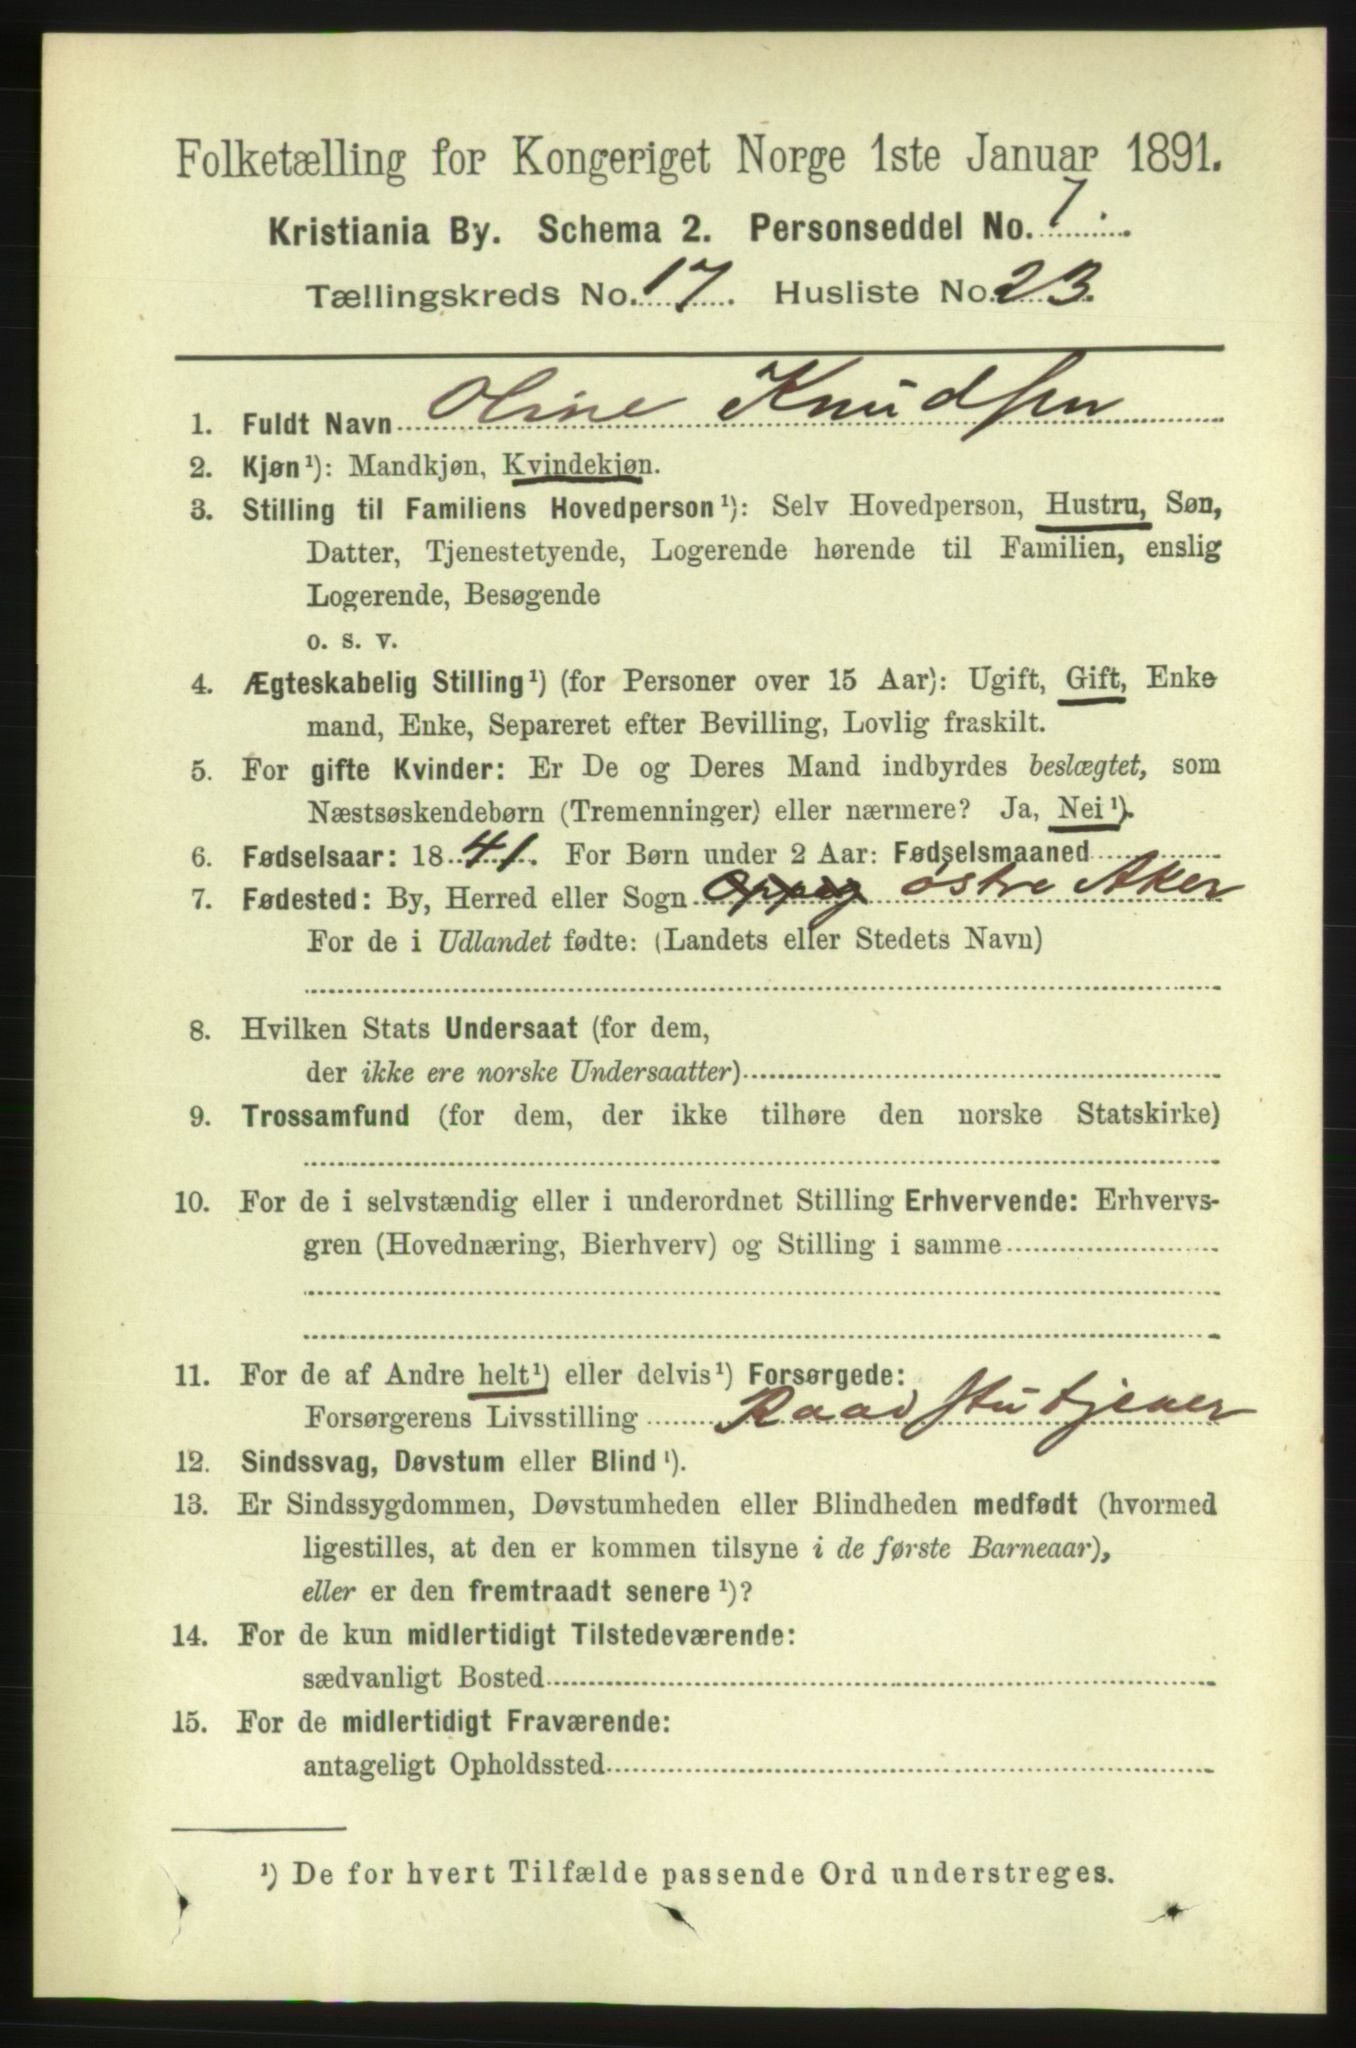 Folketælling for Kongeriget Norge 1ste Januar 1891.
Kristiania By. Schema 2. Personseddel No. 7.
Tællingskreds No. 17. Husliste No. 23.
1. Fuldt Navn Oline Knudsen
2. Kjøn¹): Mandkjøn, Kvindekjøn.
3. Stilling til Familiens Hovedperson¹): Selv Hovedperson, Hustru, Søn,
Datter, Tjenestetyende, Logerende hørende til Familien, enslig
Logerende, Besøgende
o. s. v.
4. Ægteskabelig Stilling¹) (for Personer over 15 Aar): Ugift, Gift, Enke
mand, Enke, Separeret efter Bevilling, Lovlig fraskilt.
5. For gifte Kvinder: Er De og Deres Mand indbyrdes beslægtet, som
Næstsøskendebørn (Tremenninger) eller nærmere? Ja, Nei¹).
6. Fødselsaar: 1841. For Børn under 2 Aar: Fødselsmaaned
7. Fødested: By, Herred eller Sogn østre Aker
For de i Udlandet fødte: (Landets eller Stedets Navn)
8. Hvilken Stats Undersaat (for dem,
der ikke ere norske Undersaatter)
9. Trossamfund (for dem, der ikke tilhøre den norske Statskirke)
10. For de i selvstændig eller i underordnet Stilling Erhvervende: Erhvervs-
gren (Hovednæring, Bierhverv) og Stilling i samme
11. For de af Andre helt¹) eller delvis¹) Forsørgede:
Forsørgerens Livsstilling Raadstutjener
12. Sindssvag, Døvstum eller Blind¹).
13. Er Sindssygdommen, Døvstumheden eller Blindheden medfødt (hvormed
ligestilles, at den er kommen tilsyne i de første Barneaar),
eller er den fremtraadt senere¹)?
14. For de kun midlertidigt Tilstedeværende:
sædvanligt Bosted
15. For de midlertidigt Fraværende:
antageligt Opholdssted
¹) De for hvert Tilfælde passende Ord understreges.